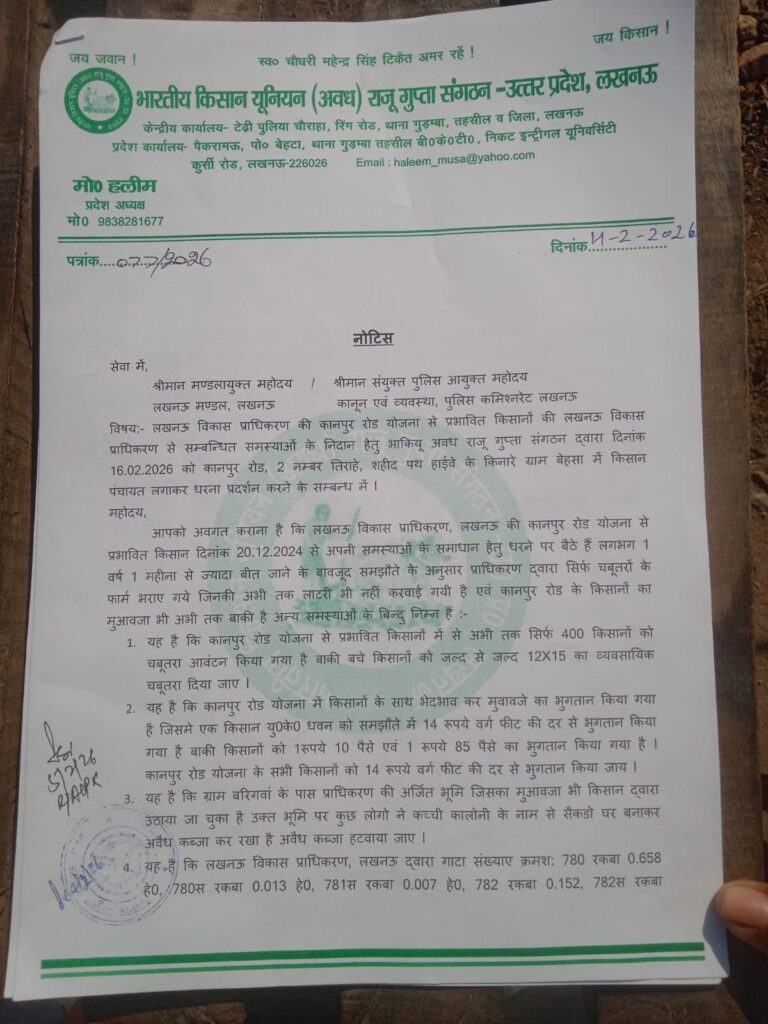 जय जवान !
स्व० चौधरी महेन्द्र सिंह टिकैत अमर रहें !
जय किसान !
भारतीय किसान यूनियन (अवध) राजू गुप्ता संगठन -उत्तर प्रदेश, लखनऊ
केन्द्रीय कार्यालय- टेढ़ी पुलिया चौराहा, रिंग रोड, थाना गुड़म्बा, तहसील व जिला, लखनऊ
प्रदेश कार्यालय- पैकरामऊ, पो० बेहटा, थाना गुड़म्बा तहसील बी०के०टी०, निकट इन्ट्रीगल यूनिवर्सिटी
कुर्सी रोड, लखनऊ-226026 Email : haleem_musa@yahoo.com
मो० हलीम
प्रदेश अध्यक्ष
मो0 9838281677
पत्रांक....077/2026
दिनांक 11-2-2026
नोटिस
सेवा में,
श्रीमान मण्डलायुक्त महोदय / श्रीमान संयुक्त पुलिस आयुक्त महोदय
लखनऊ मण्डल, लखनऊ कानून एवं व्यवस्था, पुलिस कमिश्नरेट लखनऊ
विषय:- लखनऊ विकास प्राधिकरण की कानपुर रोड योजना से प्रभावित किसानों की लखनऊ विकास
प्राधिकरण से सम्बन्धित समस्याओं के निदान हेतु भाकियू अवध राजू गुप्ता संगठन द्वारा दिनांक
16.02.2026 को कानपुर रोड, 2 नम्बर तिराहे, शहीद पथ हाईवे के किनारे ग्राम बेहसा में किसान
पंचायत लगाकर धरना प्रदर्शन करने के सम्बन्ध में ।
महोदय,
आपको अवगत कराना है कि लखनऊ विकास प्राधिकरण, लखनऊ की कानपुर रोड योजना से
प्रभावित किसान दिनांक 20.12.2024 से अपनी समस्याओं के समाधान हेतु धरने पर बैठे हैं लगभग 1
वर्ष 1 महीना से ज्यादा बीत जाने के बावजूद समझौते के अनुसार प्राधिकरण द्वारा सिर्फ चबूतरों के
फार्म भराए गये जिनकी अभी तक लाटरी भी नहीं करवाई गयी है एवं कानपुर रोड के किसानों का
मुआवजा भी अभी तक बाकी है अन्य समस्याओं के बिन्दु निम्न हैं :-
1. यह है कि कानपुर रोड योजना से प्रभावित किसानों में से अभी तक सिर्फ 400 किसानों को
चबूतरा आवंटन किया गया है बाकी बचे किसानों को जल्द से जल्द 12X15 का व्यवसायिक
चबूतरा दिया जाए ।
2. यह है कि कानपुर रोड योजना में किसानों के साथ भेदभाव कर मुवावजे का भुगतान किया गया
है जिसमे एक किसान यु0के0 धवन को समझौते में 14 रूपये वर्ग फीट की दर से भुगतान किया
गया है बाकी किसानों को 1रूपये 10 पैसे एवं 1 रूपये 85 पैसे का भुगतान किया गया है ।
कानपुर रोड योजना के सभी किसानों को 14 रूपये वर्ग फीट की दर से भुगतान किया जाय ।
3. यह है कि ग्राम बरिगवां के पास प्राधिकरण की अर्जित भूमि जिसका मुआवजा भी किसान द्वारा
उठाया जा चुका है उक्त भूमि पर कुछ लोगो ने कच्ची कालोनी के नाम से सैकडो घर बनाकर
अवैध कब्जा कर रखा है अवैध कब्जा हटवाया जाए ।
4. यह है कि लखनऊ विकास प्राधिकरण, लखनऊ द्वारा गाटा संख्याए क्रमश: 780 रकबा 0.658
हे0, 780स रकबा 0.013 हे0, 781स रकबा 0.007 हे0, 782 रकबा 0.152, 782स रकबा